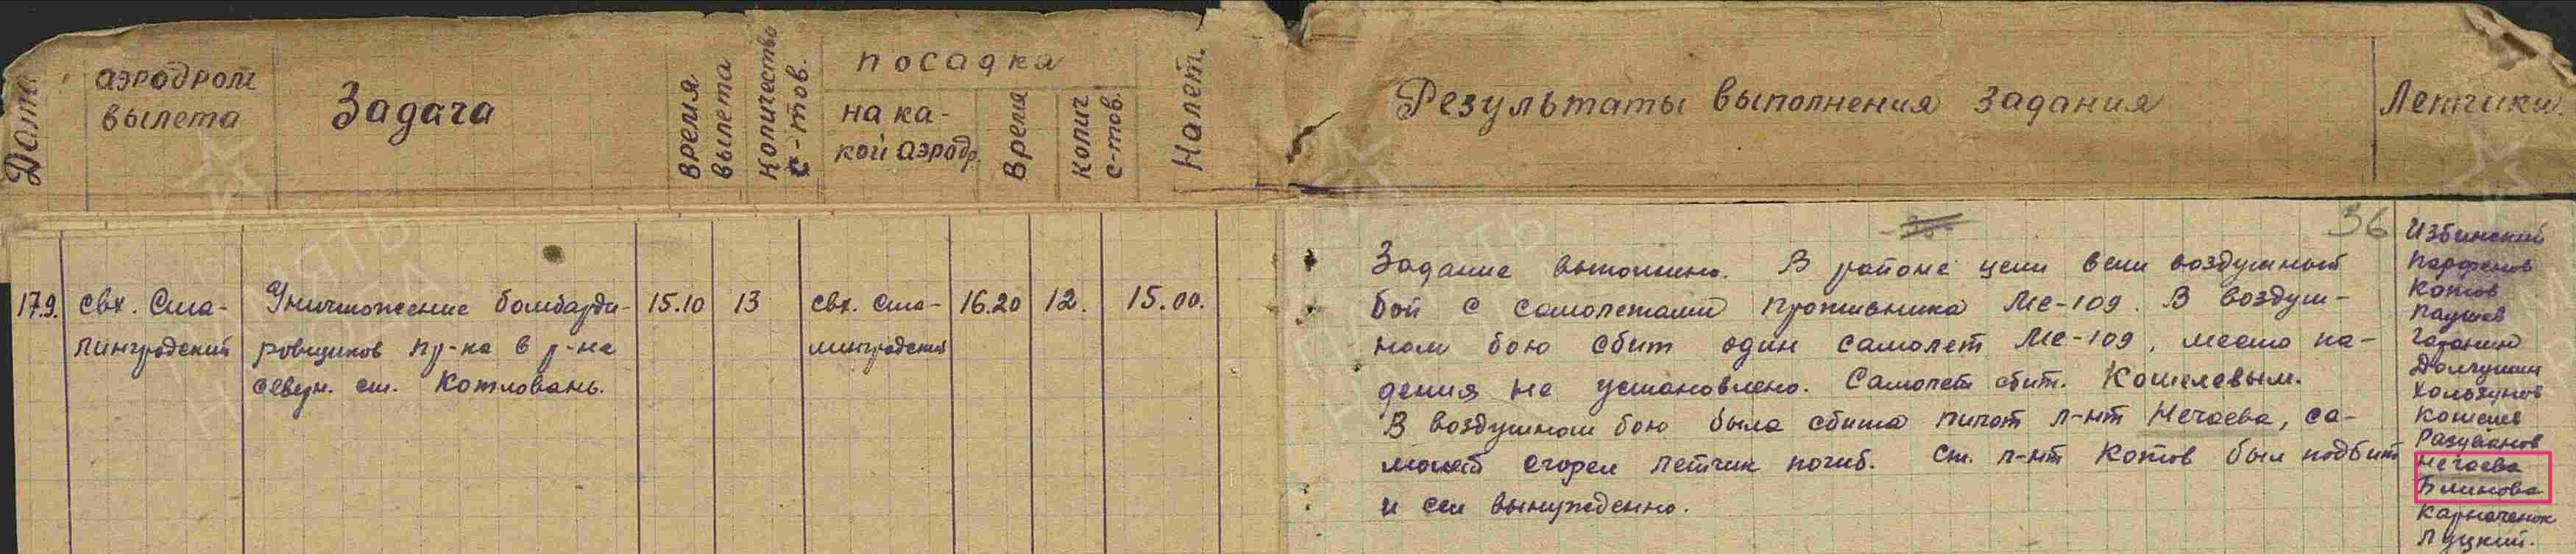 Дата
аэродром
вылета
Задача
время
вылета
количество
с-тов.
посадка
на ка-
кой аэродр.
Время
колич
с-тов.
Налет.
Результаты выполнения задания
Летчики
36
17.9.
свх. Ста-
линградский
Уничтожение бомбарди-
ровщиков пр-ка в р-не
северн. ст. Котловань.
15.10
13
свх. Ста-
линградский
16.20
12.
15.00.
Задание выполнено. В районе цели вели воздушный
бой с самолетами противника Ме-109. В воздуш-
ном бою сбит один самолет Ме-109, место па-
дения не установлено. Самолет сбит. Кошелевым.
В воздушном бою была сбита пилот л-нт Нечаева, са-
молет сгорел летчик погиб. Ст. л-нт Котов был подбит
и сел вынужденно.
Избинский
Парфенов
Котов
Паушев
Гаранин
Долгушин
Хользунов
Кошелев
Разуванов
Нечаева
Блинова
Карначенок
Луцкий.